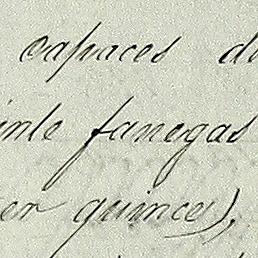 capaces d
inte fanegas
er quince),